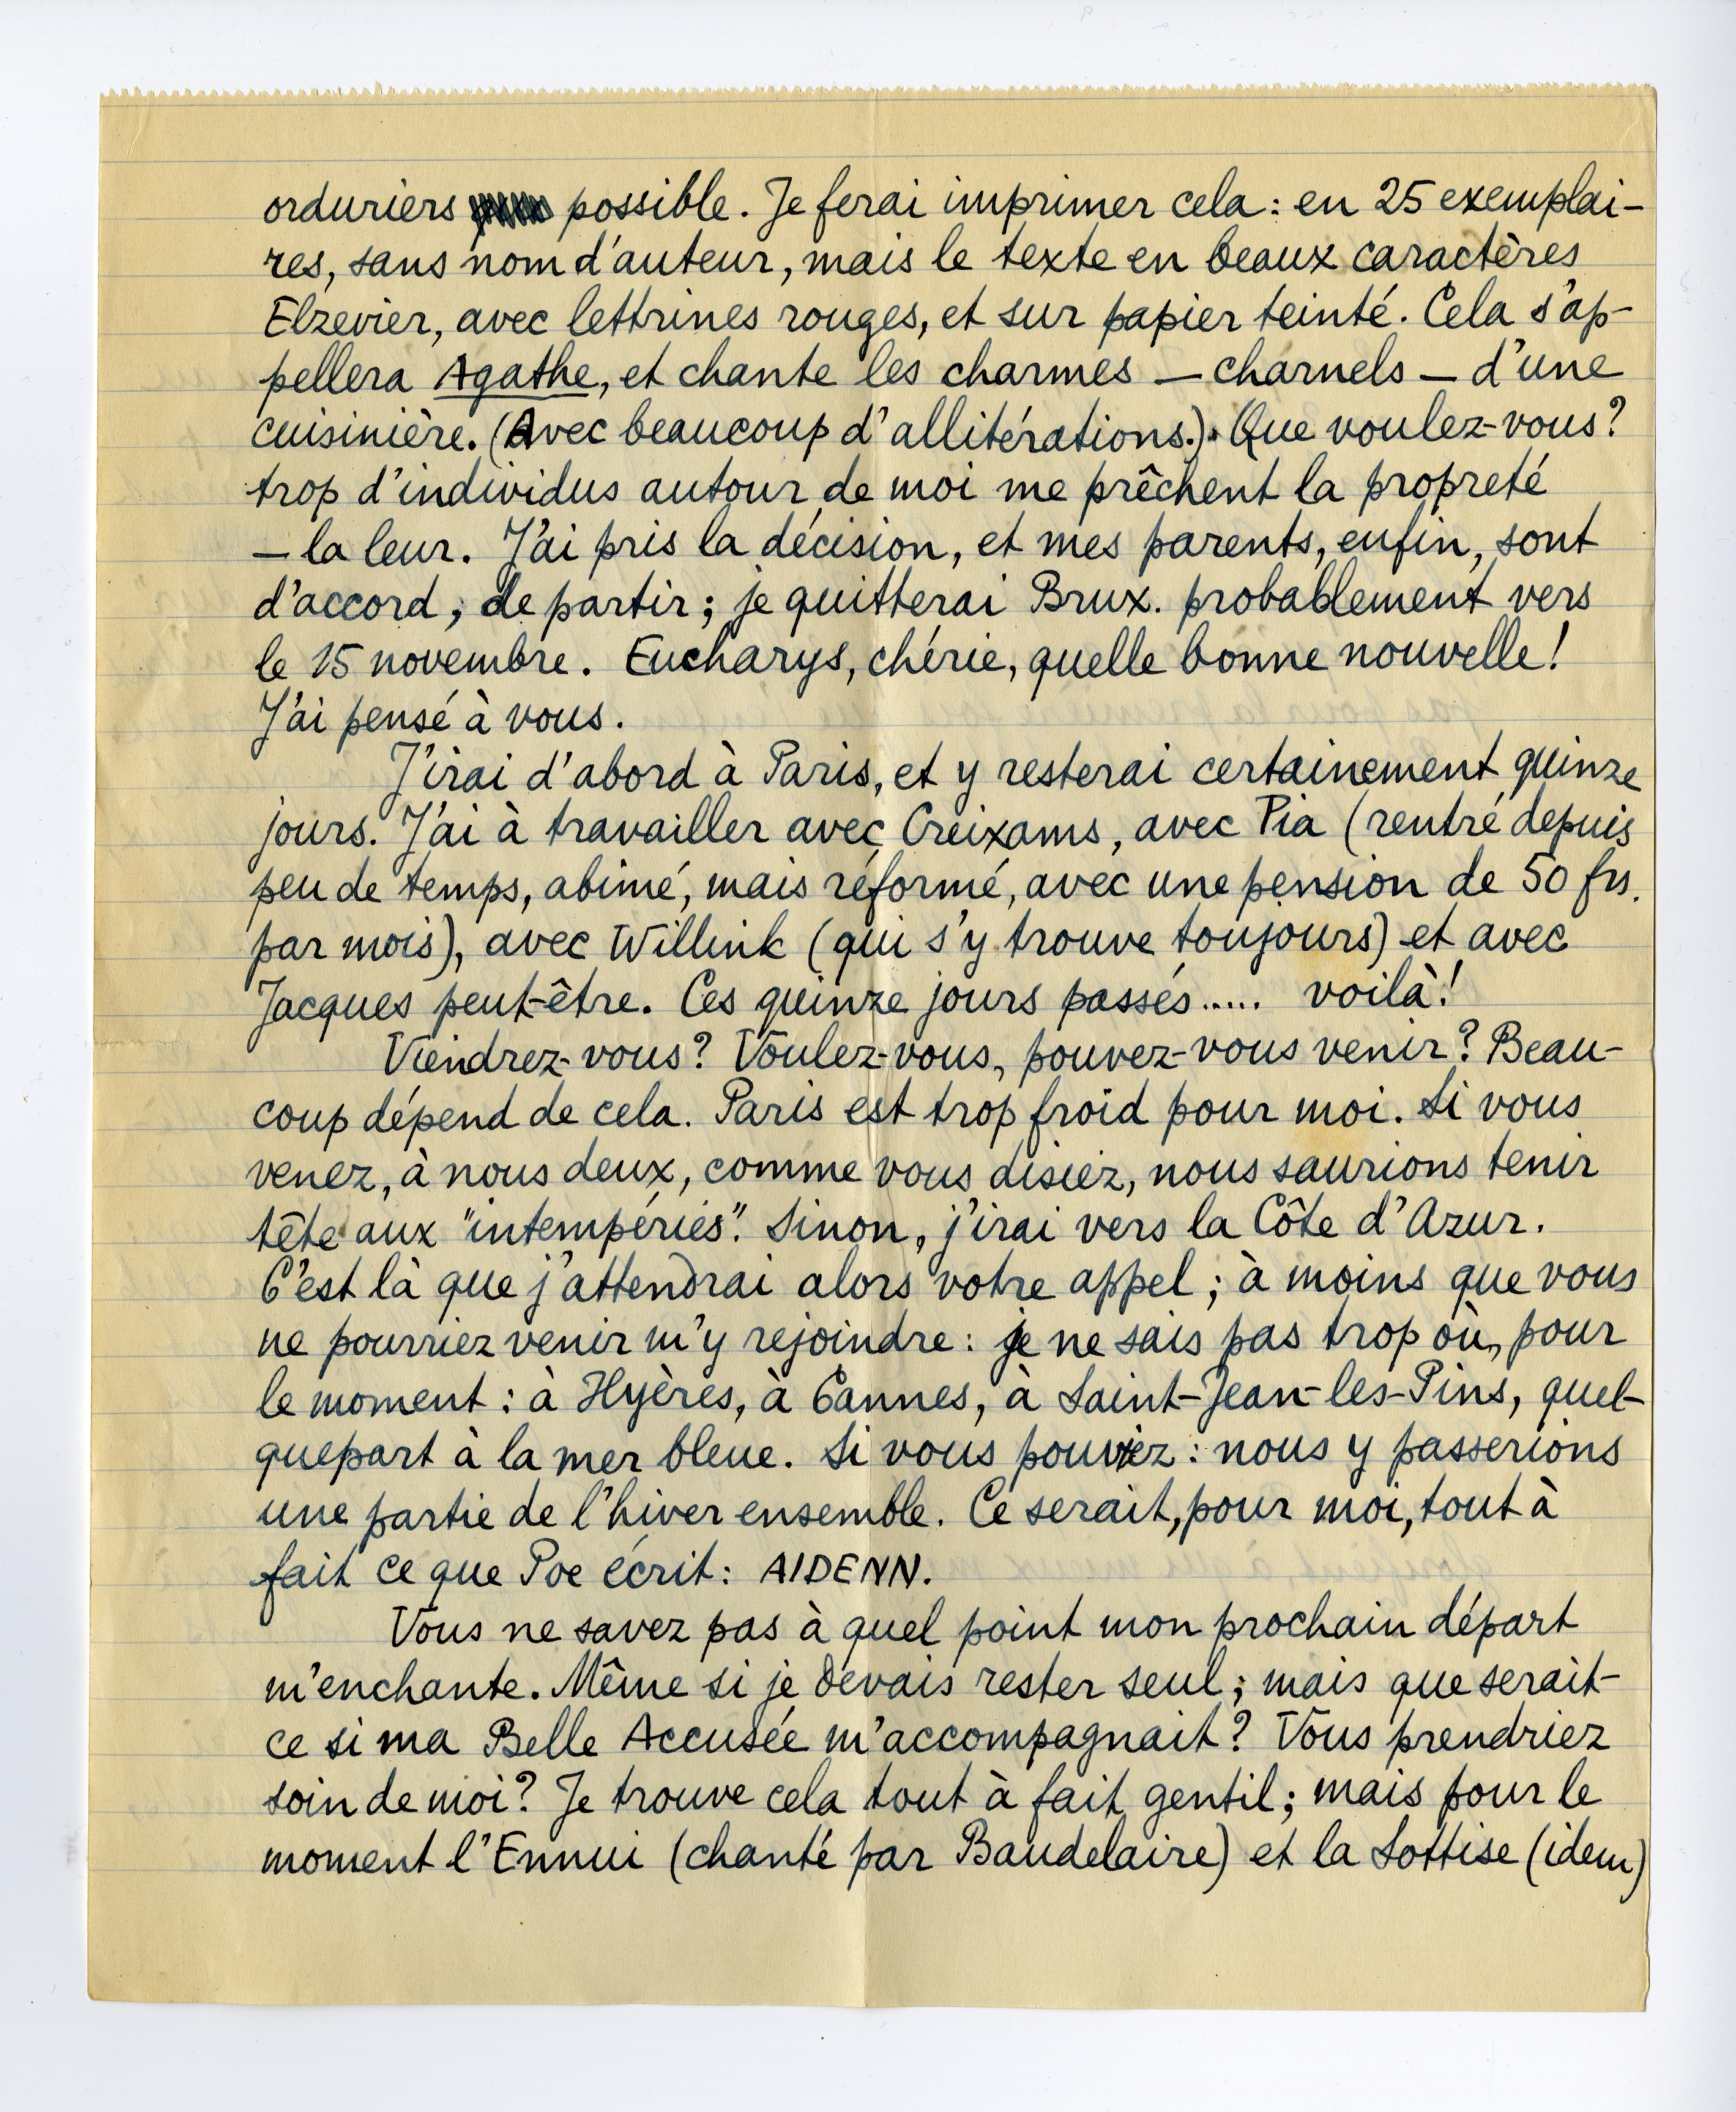 orduriers possible. Je ferai imprimer cela : en 25 exemplai-
res, sans nom d'auteur, mais le texte en beaux caractères
Elzevier, avec lettrines rouges, et sur papier teinté. Cela s'ap-
pellera Agathe, et chante les charmes — charnels — d'une
cuisinière. (Avec beaucoup d'allitérations.). Que voulez-vous?
trop d'individus autour de moi me prêchent la propreté
— la leur. J'ai pris la décision, et mes parents, enfin, sont
d'accord, de partir; je quitterai Brux. probablement vers
le 15 novembre. Eucharys, chérie, quelle bonne nouvelle!
J'ai pensé à vous.
J'irai d'abord à Paris, et y resterai certainement quinze
jours. J'ai à travailler avec Creixams, avec Pia (rentré depuis
peu de temps, abimé, mais réformé, avec une pension de 50 frs.
par mois), avec Willink (qui s'y trouve toujours) et avec
Jacques peut-être. Ces quinze jours passés ..... voilà!
Viendrez-vous? Voulez-vous, pouvez-vous venir? Beau-
coup dépend de cela. Paris est trop froid pour moi. Si vous
venez, à nous deux, comme vous disiez, nous saurions tenir
tête aux "intempéries". Sinon, j'irai vers la Côte d'Azur.
C'est là que j'attendrai alors votre appel; à moins que vous
ne pourriez venir m'y rejoindre: je ne sais pas trop où, pour
le moment : à Hyères, à Cannes, à Saint-Jean-les-Pins, quel-
quepart à la mer bleue. Si vous pouviez : nous y passerions
une partie de l'hiver ensemble. Ce serait, pour moi, tout à
fait ce que Poe écrit: AIDENN.
Vous ne savez pas à quel point mon prochain départ
m'enchante. Même si je devais rester seul; mais que serait-
ce si ma Belle Accusée m'accompagnait? Vous prendriez
soin de moi? Je trouve cela tout à fait gentil; mais pour le
moment l'Ennui (chanté par Baudelaire) et la Sottise (idem)